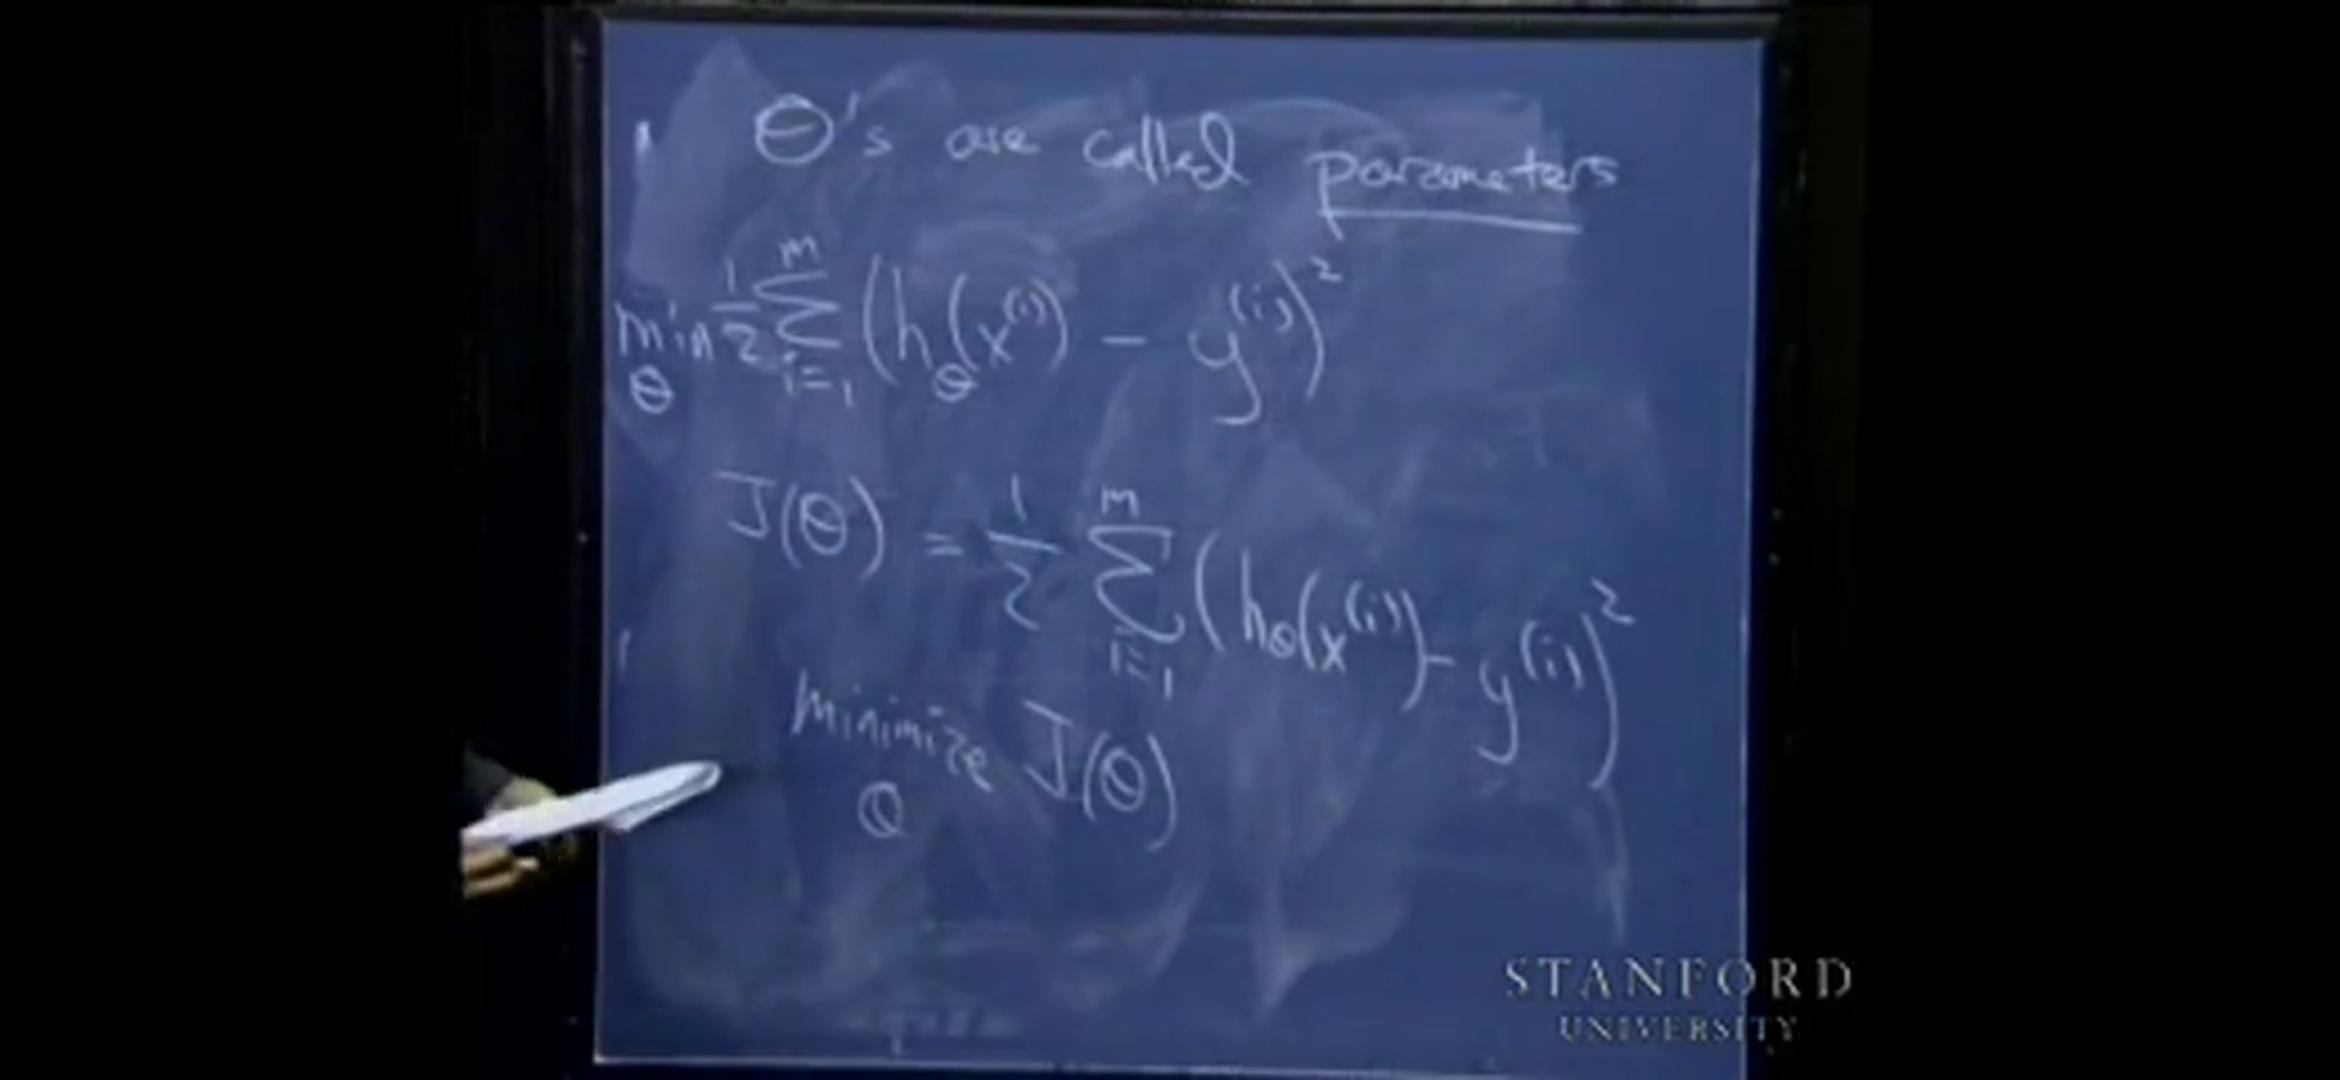 θ's are called parameters
min θ 1/2 Σ i=1 m (hθ(x^(i)) - y^(i))²
J(θ) = 1/2 Σ i=1 m (hθ(x^(i)) - y^(i))²
minimize θ J(θ)
STANFORD
UNIVERSITY